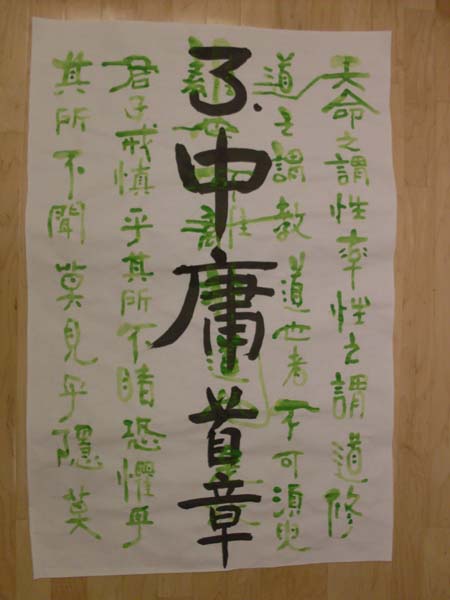 天命之謂性率性之謂道修
道之謂教道也者不可須臾
離也可離
3.中庸首章
君子戒慎乎其所不睹恐懼乎
其所不聞莫見乎隱莫